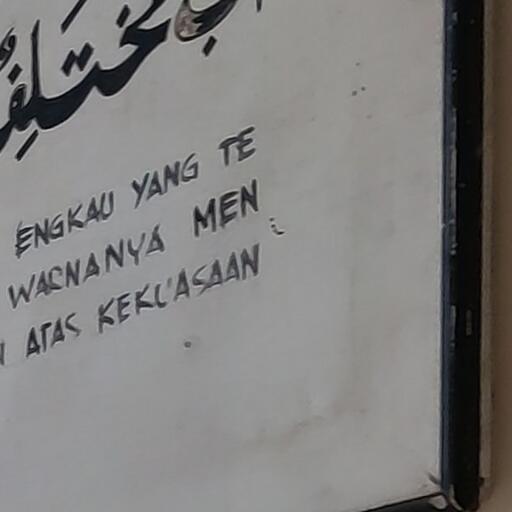 مختلف
ENGKAU YANG TE
WARNANYA MEN
ATAS KEKUASAAN